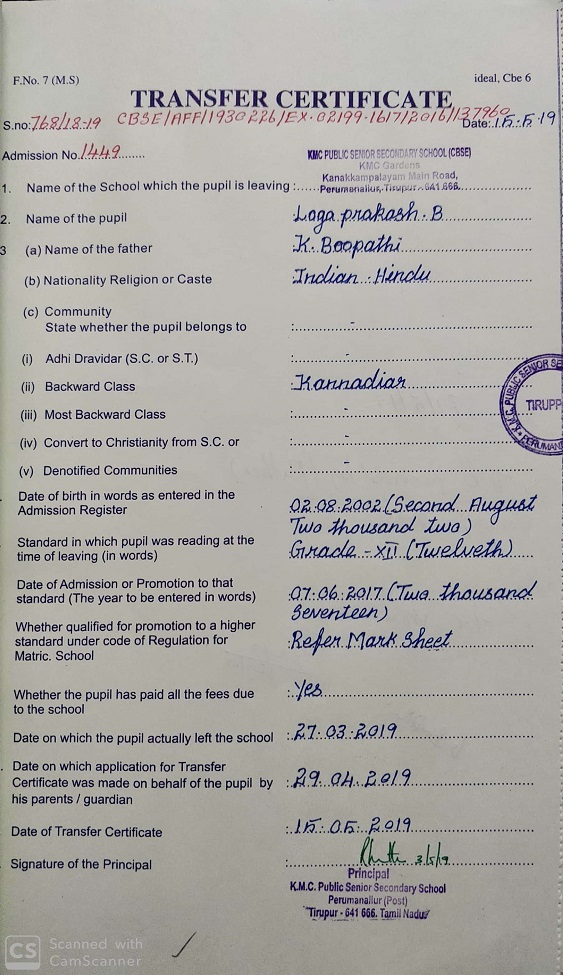 F.No. 7 (M.S)
ideal, Cbe 6
TRANSFER CERTIFICATE
S.no:768/18-19 CBSE/AFF/1930226/EX-02199-1617/2016/137960 Date:15.5.19
Admission No.1449
KMC PUBLIC SENIOR SECONDARY SCHOOL (CBSE)
KMC Gardens
Kanakkampalayam Main Road,
1. Name of the School which the pupil is leaving : Perumanallur, Tirupur - 641 666.
2. Name of the pupil :Loga prakash.B
3 (a) Name of the father :K.Boopathi
(b) Nationality Religion or Caste :Indian.Hindu
(c) Community
State whether the pupil belongs to : -
(i) Adhi Dravidar (S.C. or S.T.) : -
(ii) Backward Class :Kannadiar
(iii) Most Backward Class : -
(iv) Convert to Christianity from S.C. or : -
(v) Denotified Communities : -
K.M.C. PUBLIC SENIOR SE
TIRUPP
PERUMAN
Date of birth in words as entered in the
Admission Register :02.08.2002 (Second August
Two thousand two)
Standard in which pupil was reading at the
time of leaving (in words) :Grade - XII (Twelveth)
Date of Admission or Promotion to that
standard (The year to be entered in words) :07.06.2017 (Two thousand
Seventeen)
Whether qualified for promotion to a higher
standard under code of Regulation for :Refer Mark Sheet
Matric. School
Whether the pupil has paid all the fees due :Yes
to the school
Date on which the pupil actually left the school :27.03.2019
Date on which application for Transfer
Certificate was made on behalf of the pupil by :29.04.2019
his parents / guardian
Date of Transfer Certificate :15.05.2019
Signature of the Principal : 3/5/19
Principal
K.M.C. Public Senior Secondary School
Perumanallur (Post)
Tirupur - 641 666. Tamil Nadu
CS Scanned with
CamScanner